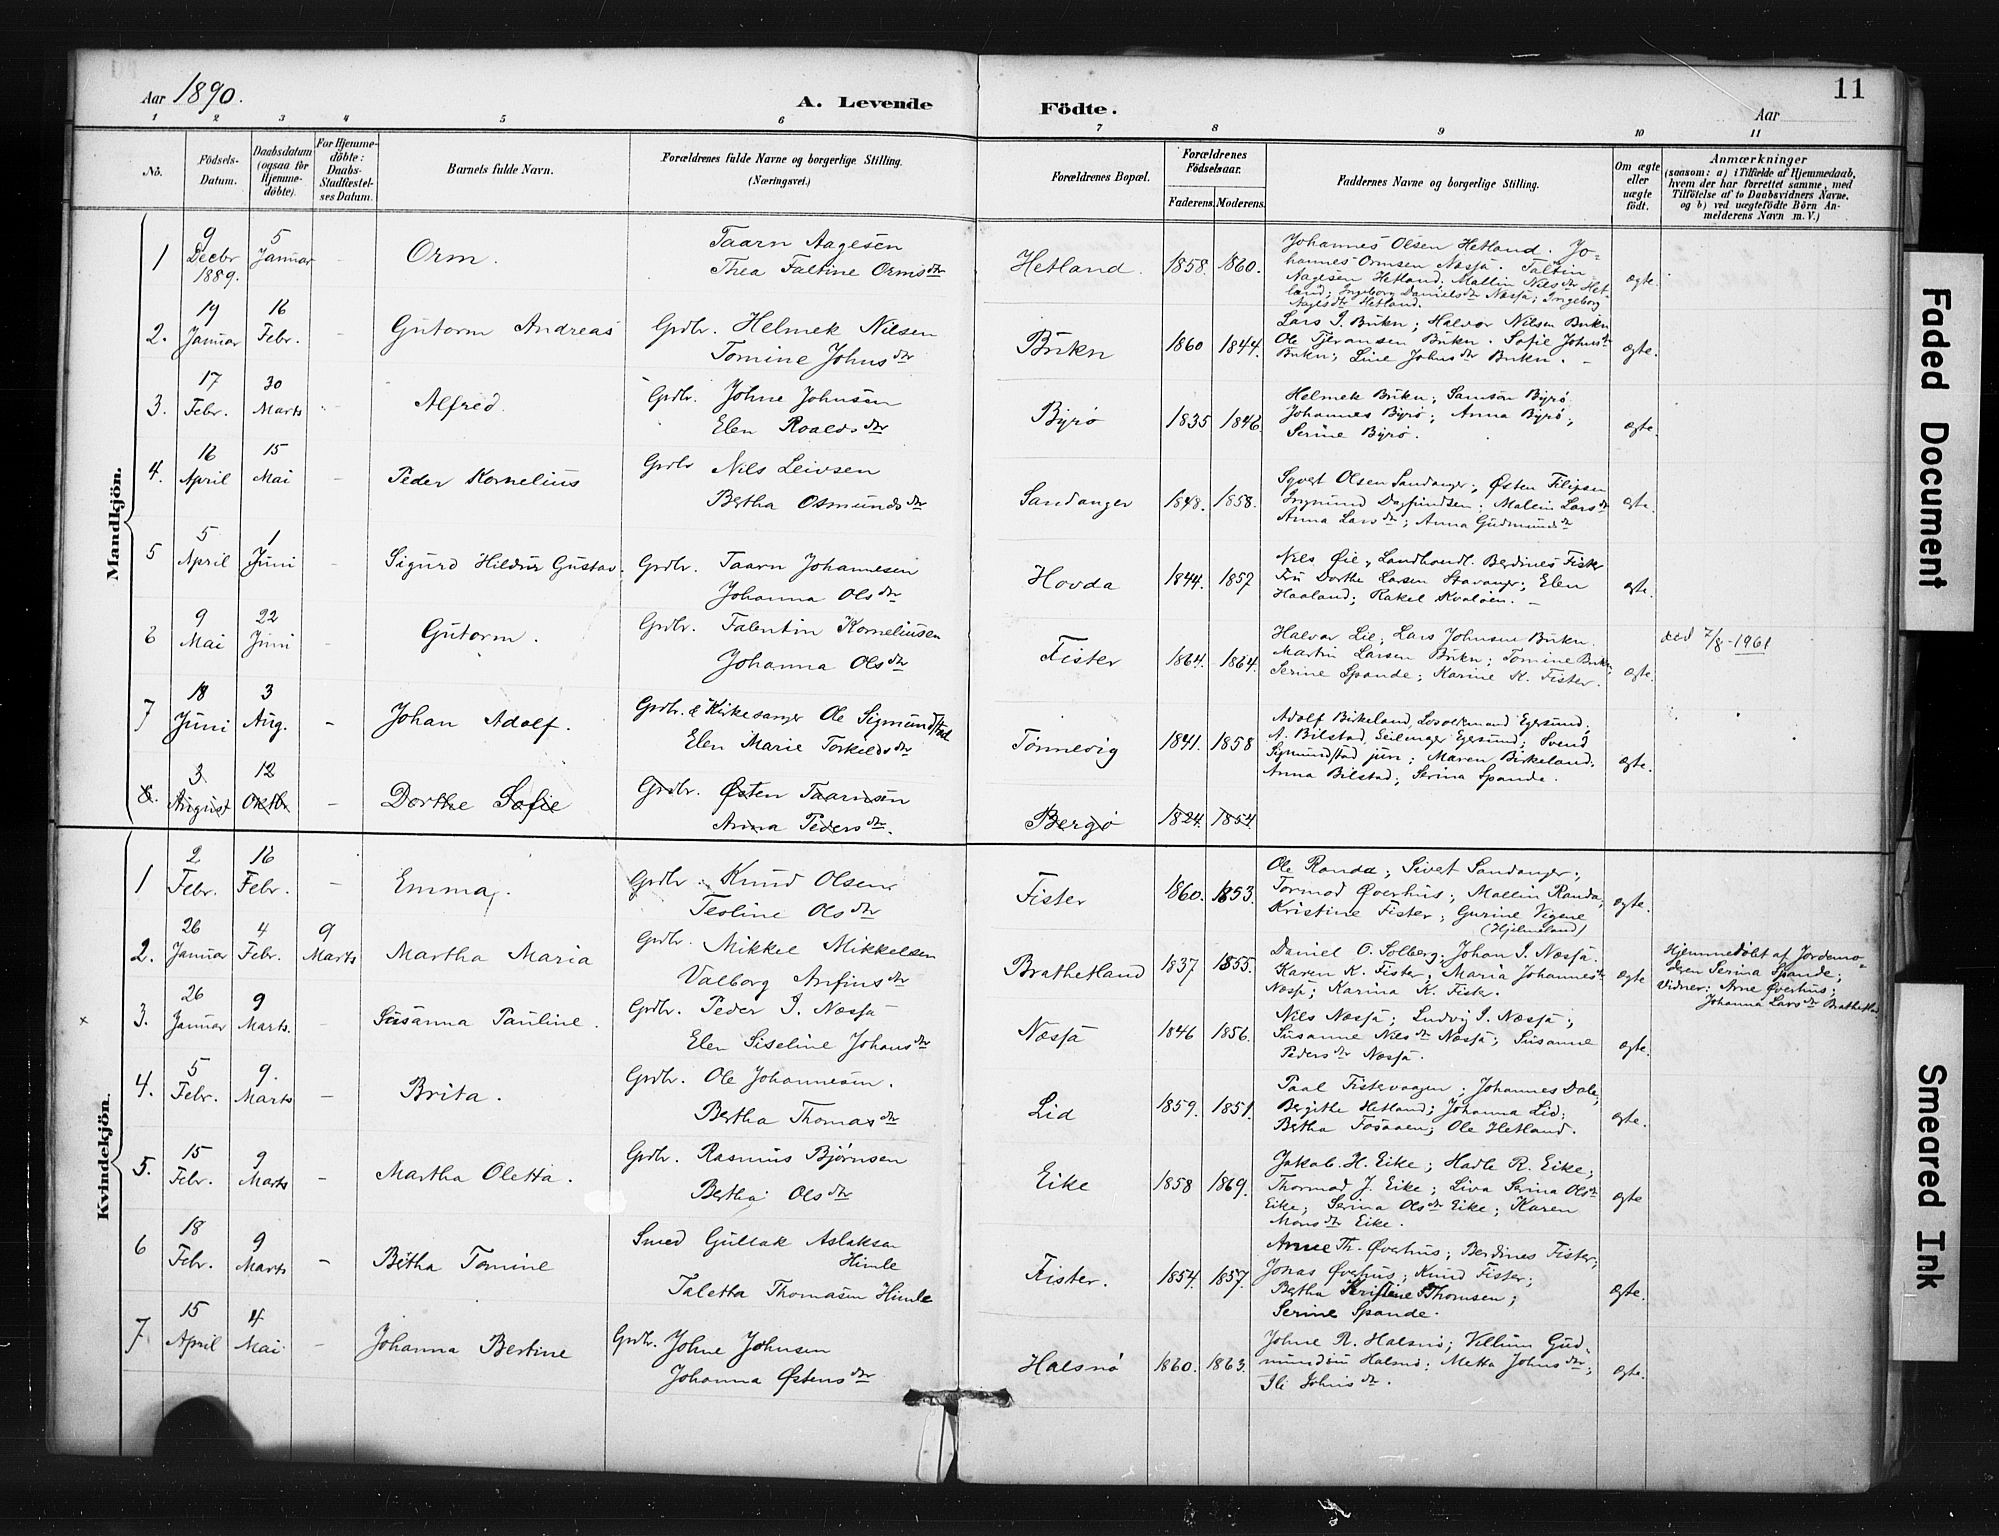 Aar 1890.
A. Levende Födte.
Aar
11
1 2 3 4 5 6 7 8 9 10 11
No.
Födsels-Datum.
Daabsdatum (ogsaa for Hjemme-döbte).
For Hjemme-döbte: Daabs-Stadfæstel-ses Datum.
Barnets fulde Navn.
Forældrenes fulde Navne og borgerlige Stilling. (Næringsvei.)
Forældrenes Bopæl.
Forældrenes Födselsaar.
Faderens. Moderens.
Faddernes Navne og borgerlige Stilling.
Om ægte eller uægte födt.
Anmærkninger
(saasom: a) i Tilfælde af Hjemmedaab,
hvem der har forrettet samme, med
Tilföielse af to Daabsvidners Navne.
og b) ved uægtefödte Börn An-
melderens Navn m. V.)
Mandkjön.
1 9 Decbr 1889. 5 Januar - Orm. Taarn Aagesen
Thea Faltine Ormsdtr Hetland. 1858. 1860. ægte.
Johannes Olsen Hetland. Jo-
hannes Ormsen Næsjå. Faltin
Aagesen Hetland. Mallin Nilsdtr Het-
land; Ingeborg Danielsdtr Næsjå; Ingeborg
Aagesdtr Hetland.
2. 19 Januar 16 Febr. - Gutorm Andreas Grdbr. Helmek Nilsen
Tomine Johnsdtr Bukn 1860 1844. ægte.
Lars J. Bukn; Halvor Nilsen Bukn
Ole Tjeransen Bukn. Sofie Johnsdtr
Bukn; Line Johnsdtr Bukn. -
3. 17 Febr. 30 Marts - Alfred. Grdbr. Johne Johnsen
Elen Roaldsdtr Byrø 1835 1846. ægte.
Helmek Bukn; Samson Byrø
Johannes Byrø; Anna Byrø;
Serine Byrø.
4. 16 April 15 Mai - Peder Kornelius Grdbr Nils Leivsen
Bertha Osmundsdtr Sandanger 1848. 1858. ægte.
Syvert Olsen Sandanger; Østen Filipsen
Ingmund Dagfindsen; Mallin Larsdtr
Anna Larsdtr; Anna Gudmundsdtr
5 5 April 1 Juni - Sigurd Hildur Gustav. Grdbr. Taarn Johannesen
Johanna Olsdtr Hovda 1844. 1857 ægte.
Nils Øie, Landhandl. Berdines Fister
Fru Dorthe Larsen Stavanger; Elen
Haaland; Rakel Kvaløen. -
6 9 Mai 22 Juni Gutorm. Grdbr. Falentin Korneliusen
Johanna Olsdtr Fister 1864. 1864. ægte.
Halvor Lie, Lars Johnsen Bukn.
Martin Larsen Bukn; Tomine Bukn;
Serine Spande; Karine K. Fister.
død 7/8-1961
7 18 Juni 3 Aug. - Johan Adolf. Grdbr. & Kirkesanger Ole Sigmundstad
Elen Marie Torkeldsdtr Tønnevig 1841. 1858 ægte.
Adolf Birkeland, Egersund;
A. Bilstad, Egersund; Svend
Sigmundstad jun; Maren Birkeland.
Anna Bilstad; Serina Spande.
8. 3 August 12 Oktbr. - Dorthe Sofie Grdbr. Østen Taarnsen
Anna Pedersdtr. Bergø 1824. 1854
Kvindekjön.
1 2 Febr. 16 Febr. - Emma. Grdbr. Knud Olsen
Teoline Olsdtr Fister 1860. 1853. ægte.
Ole Randa; Sivert Sandanger;
Tormod Øverhus; Mallin Randa,
Kristine Fister; Gurine Vigene
(Hjelmeland)
2. 26 Januar 4 Febr. 9 Marts Martha Maria Grdbr. Mikkel Mikkelsen
Valborg Arfinsdtr Brathetland 1837 1855. ægte
Daniel O. Solberg, Johan I. Næsjå.
Karen K. Fister, Maria Johannesdtr
Næsjå; Karina K. Fister.
Hjemmedøbt af Jordemo-
deren Serina Spande;
Vidner: Arne Øverhus;
Johanna Larsdtr Brathetland
x 3. 26 Januar 9 Marts. - Susanna Pauline. Grdbr. Peder I. Næsjå
Elen Siseline Johansdtr Næsjå 1846 1856. ægte.
Nils Næsjå; Ludvig I. Næsjå;
Susanne Nilsdtr Næsjå; Susanne
Pedersdtr Næsjå.
4. 5 Febr. 9. Marts - Brita. Grdbr. Ole Johannesen.
Bertha Thomasdtr Lid 1859. 1851. ægte.
Paal Fiskevaagen; Johannes Dale;
Bergithe Hetland; Johanna Lid;
Bertha Fosaaen; Ole Hetland.
5. 15 Febr. 9 Marts - Martha Oletta. Grdbr. Rasmus Bjørnsen
Bertha Olsdtr Eike 1858 1869. ægte
Jakob. H. Eike; Hadle R. Eike;
Thormod J. Eike; Liva Serina Olsdtr
Eike; Serina Olsdtr Eike; Karen
Monsdtr Eike.
6 18 Febr. 9 Marts - Bertha Tomine Smed Gullak Aslaksen
Himle
Taletta Thomasen Himle Fister. 1854. 1857. ægte.
Arne Th. Øverhus; Berdines Fister;
Jonas Øverhus; Knud Fister;
Bertha Kristine Thomsen;
Serine Spande.
7 15 April 4 Mai - Johanna Bertine Grdbr. Johne Johnsen
Johanna Østensdtr Halsnø 1860. 1863. ægte.
Johne R. Halsnø; Villum Gud-
mundsen Halsnø; Metta Johnsdtr;
Ili Johnsdtr.
Faded Document
Smeared Ink